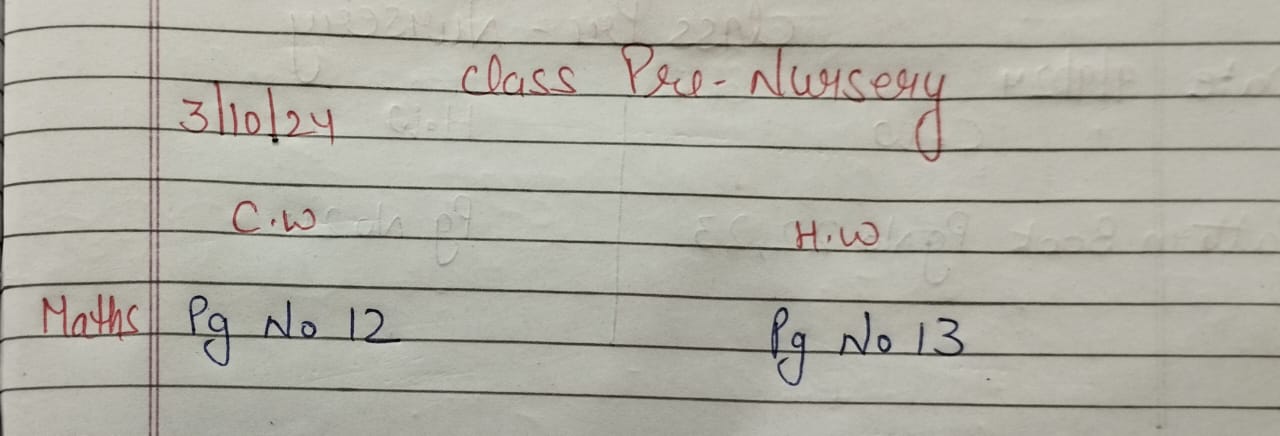 Class Pre-Nursery
3/10/24
C.W H.W
Maths Pg No 12 Pg No 13